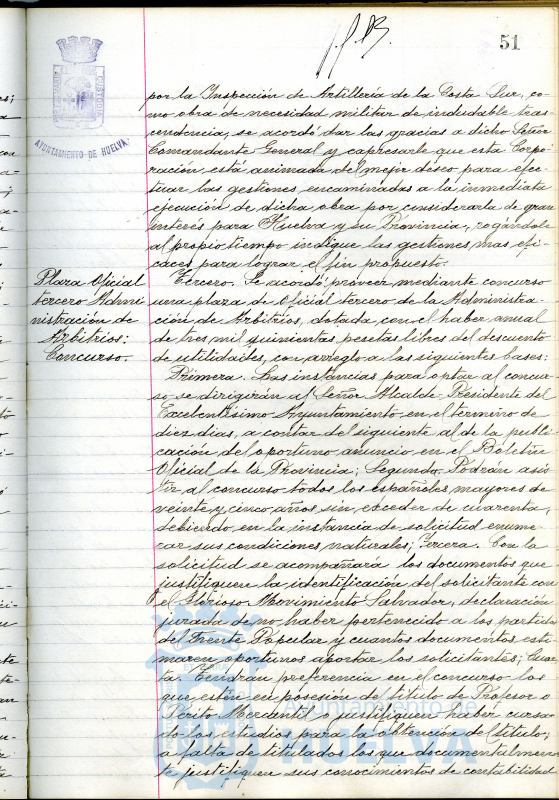 51
AYUNTAMIENTO DE HUELVA
por la Inspección de Artillería de la Costa Sur, co-
mo obra de necesidad militar de indudable tras-
cendencia, se acordó dar las gracias a dicho Señor
Comandante General y expresarle que esta Corpo-
ración está animada del mejor deseo para efec-
tuar las gestiones encaminadas a la inmediata
ejecución de dicha obra por considerarla de gran
interés para Huelva y su Provincia, rogándole
al propio tiempo indique las gestiones mas efi-
caces para lograr el fin propuesto.
Plaza Oficial
tercero Admi
nistración de
Arbitrios:
Concurso.
Tercero. Se acordó proveer mediante concurso
una plaza de oficial tercero de la Administra-
ción de Arbitrios, dotada con el haber anual
de tres mil quinientas pesetas libres del descuento
de utilidades, con arreglo a las siguientes bases:
Primera. Las instancias para optar al concur-
so se dirigirán al Señor Alcalde-Presidente del
Excelentísimo Ayuntamiento en el término de
diez días, a contar del siguiente al de la publi-
cación del oportuno anuncio en el Boletín
Oficial de la Provincia; Segundo. Podrán asis
tir al concurso todos los españoles mayores de
veinte y cinco años sin exceder de cuarenta,
debiendo en la instancia de solicitud enume
rar sus condiciones naturales; Tercera. Con la
solicitud se acompañará los documentos que
justifiquen la identificación del solicitante con
el Glorioso Movimiento Salvador, declaración
jurada de no haber pertenecido a los partidos
del Frente Popular y cuantos documentos esti-
maren oportunos aportar los solicitantes; Cuar
ta. Tendrán preferencia en el concurso los
que estén en posesión de título de Profesor o
Perito Mercantil o justifiquen haber cursa-
do los estudios para la obtención del título;
a falta de titulados los que documentalmen-
te justifiquen sus conocimientos de contabilidad
Ayuntamiento de
HUELVA